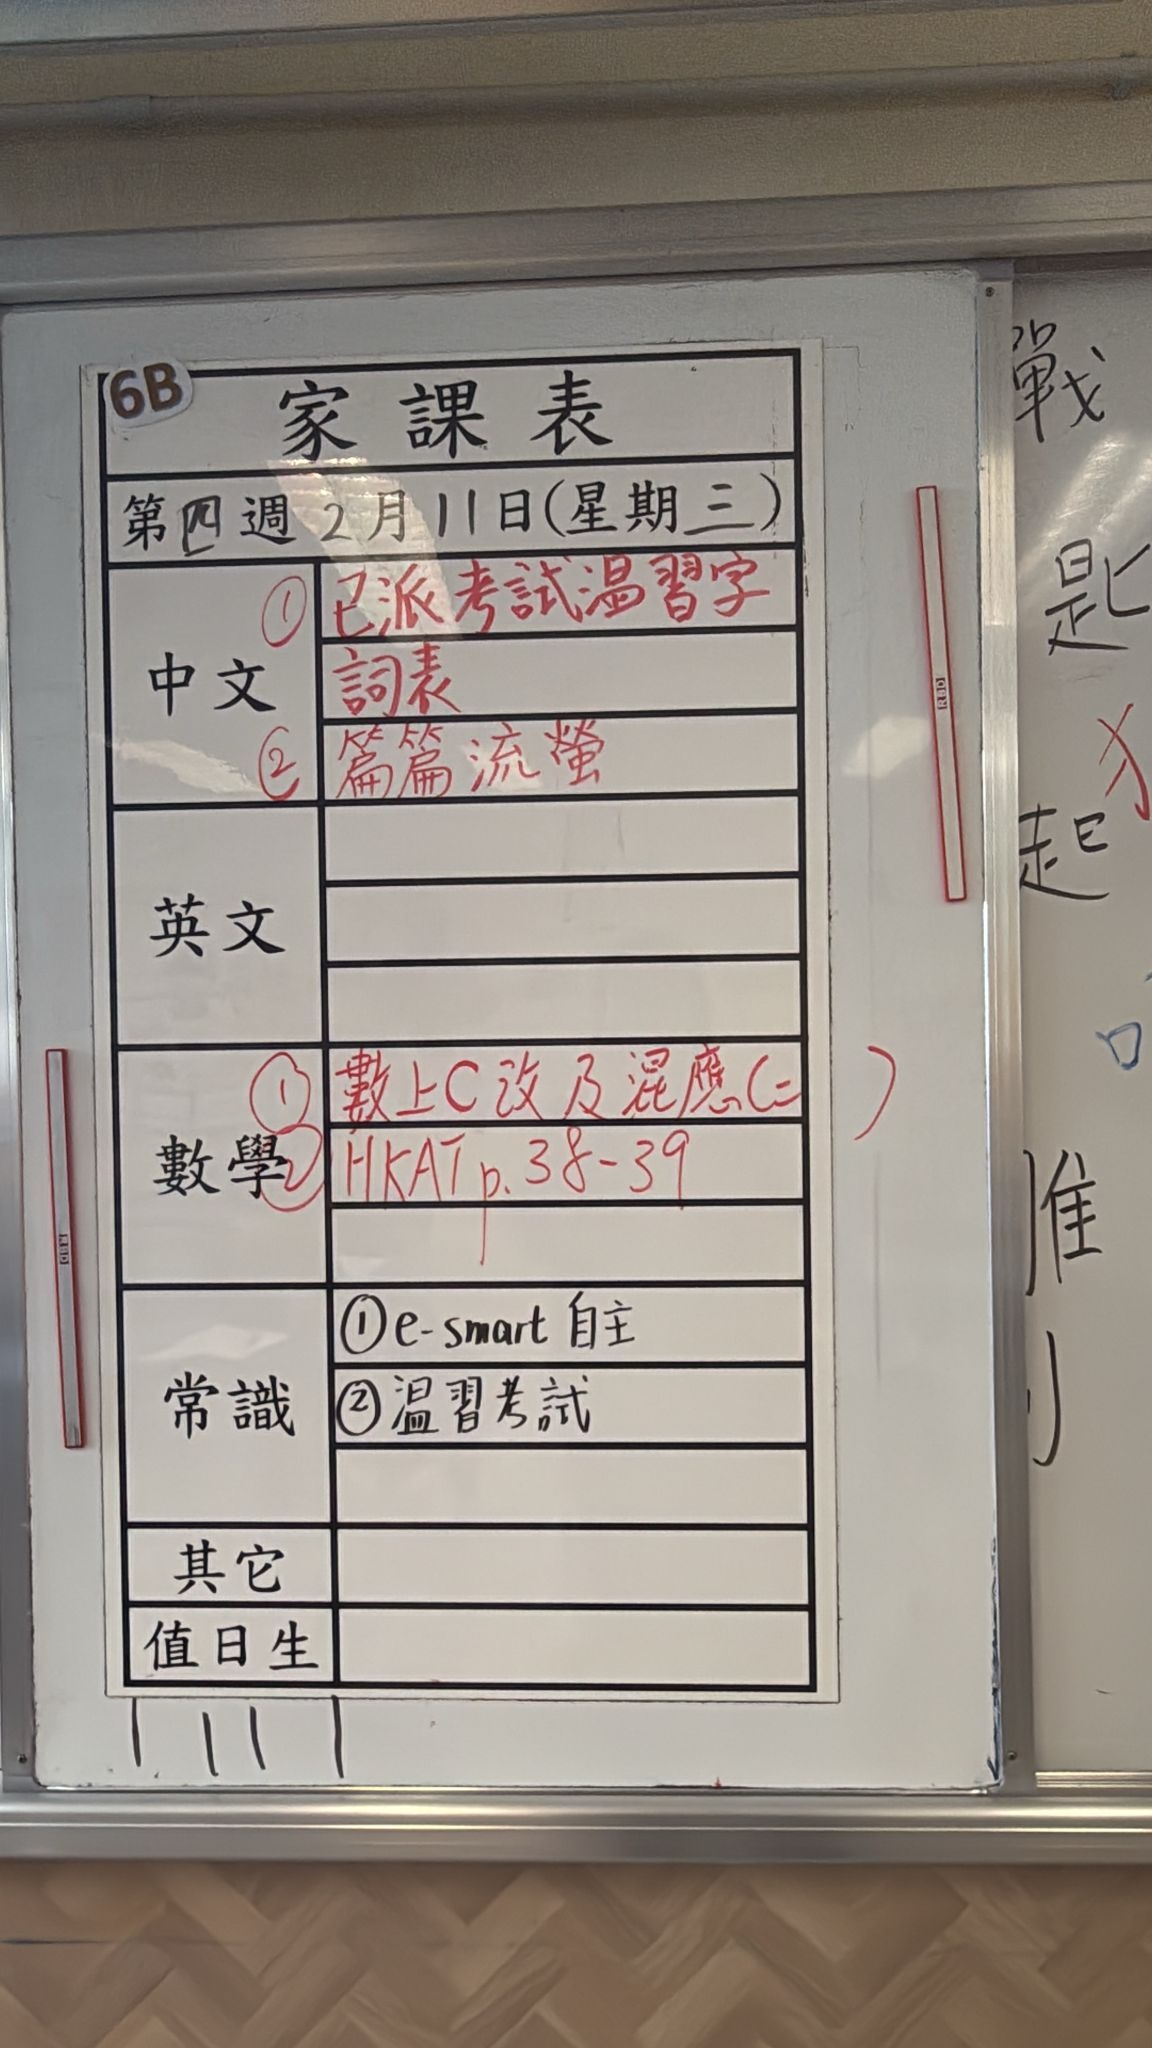 6B
家課表
第四週2月11日(星期三)
中文
①已派考試温習字
詞表
②篇篇流螢
英文
數學
①數上C改及混應(二 )
②HKAT p.38-39
常識
①e-smart 自主
②温習考試
其它
值日生
戰
匙
起